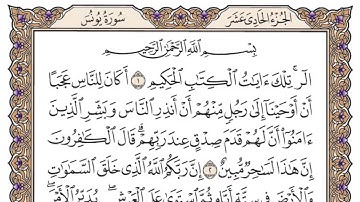 سُورَةُ يُونُسَ
الجُزْءُ الحَادِي عَشَرَ
بِسْمِ ٱللَّهِ ٱلرَّحْمَٰنِ ٱلرَّحِيمِ
الٓر ۚ تِلْكَ ءَايَٰتُ ٱلْكِتَٰبِ ٱلْحَكِيمِ ١ أَكَانَ لِلنَّاسِ عَجَبًا
أَنْ أَوْحَيْنَآ إِلَىٰ رَجُلٍ مِّنْهُمْ أَنْ أَنذِرِ ٱلنَّاسَ وَبَشِّرِ ٱلَّذِينَ
ءَامَنُوٓا۟ أَنَّ لَهُمْ قَدَمَ صِدْقٍ عِندَ رَبِّهِمْ ۗ قَالَ ٱلْكَٰفِرُونَ
إِنَّ هَٰذَا لَسَٰحِرٌ مُّبِينٌ ٢ إِنَّ رَبَّكُمُ ٱللَّهُ ٱلَّذِى خَلَقَ ٱلسَّمَٰوَٰتِ
وَٱلْأَرْضَ فِى سِتَّةِ أَيَّامٍ ثُمَّ ٱسْتَوَىٰ عَلَى ٱلْعَرْشِ ۖ يُدَبِّرُ ٱلْأَمْرَ ۖ